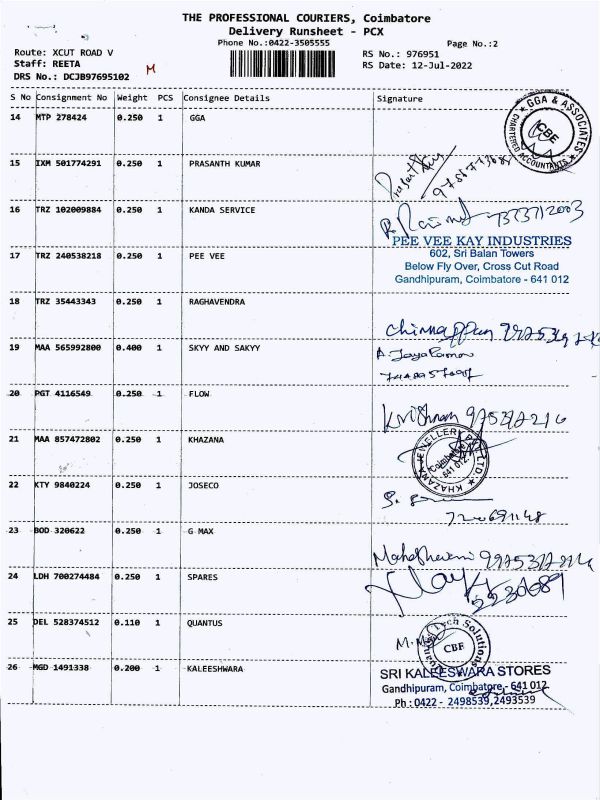 THE PROFESSIONAL COURIERS, Coimbatore
Delivery Runsheet - PCX
Phone No.:0422-3505555
Page No.:2
Route: XCUT ROAD V
Staff: REETA
DRS No.: DCJB97695102
M
RS No.: 976951
RS Date: 12-Jul-2022
S No Consignment No Weight PCS Consignee Details Signature
14 MTP 278424 0.250 1 GGA
GGA & ASSOCIATES
CHARTERED ACCOUNTANTS
CBE
15 IXM 501774291 0.250 1 PRASANTH KUMAR
16 TRZ 102009884 0.250 1 KANDA SERVICE
17 TRZ 240538218 0.250 1 PEE VEE
PEE VEE KAY INDUSTRIES
602, Sri Balan Towers
Below Fly Over, Cross Cut Road
Gandhipuram, Coimbatore - 641 012
18 TRZ 35443343 0.250 1 RAGHAVENDRA
Chinnappan
19 MAA 565992800 0.400 1 SKYY AND SAKYY
A. Jayaraman
20 PGT 4116549 0.250 1 FLOW
Krishnan
21 MAA 857472802 0.250 1 KHAZANA
KHAZANA JEWELLERY PVT. LTD.
Coimbatore
641 012.
22 KTY 9840224 0.250 1 JOSECO
23 BOD 320622 0.250 1 G MAX
24 LDH 700274484 0.250 1 SPARES
25 DEL 528374512 0.110 1 QUANTUS
Tech Solutions
CBE
26 MGD 1491338 0.200 1 KALEESHWARA
SRI KALEESWARA STORES
Gandhipuram, Coimbatore - 641 012
Ph : 0422 - 2498539,2493539